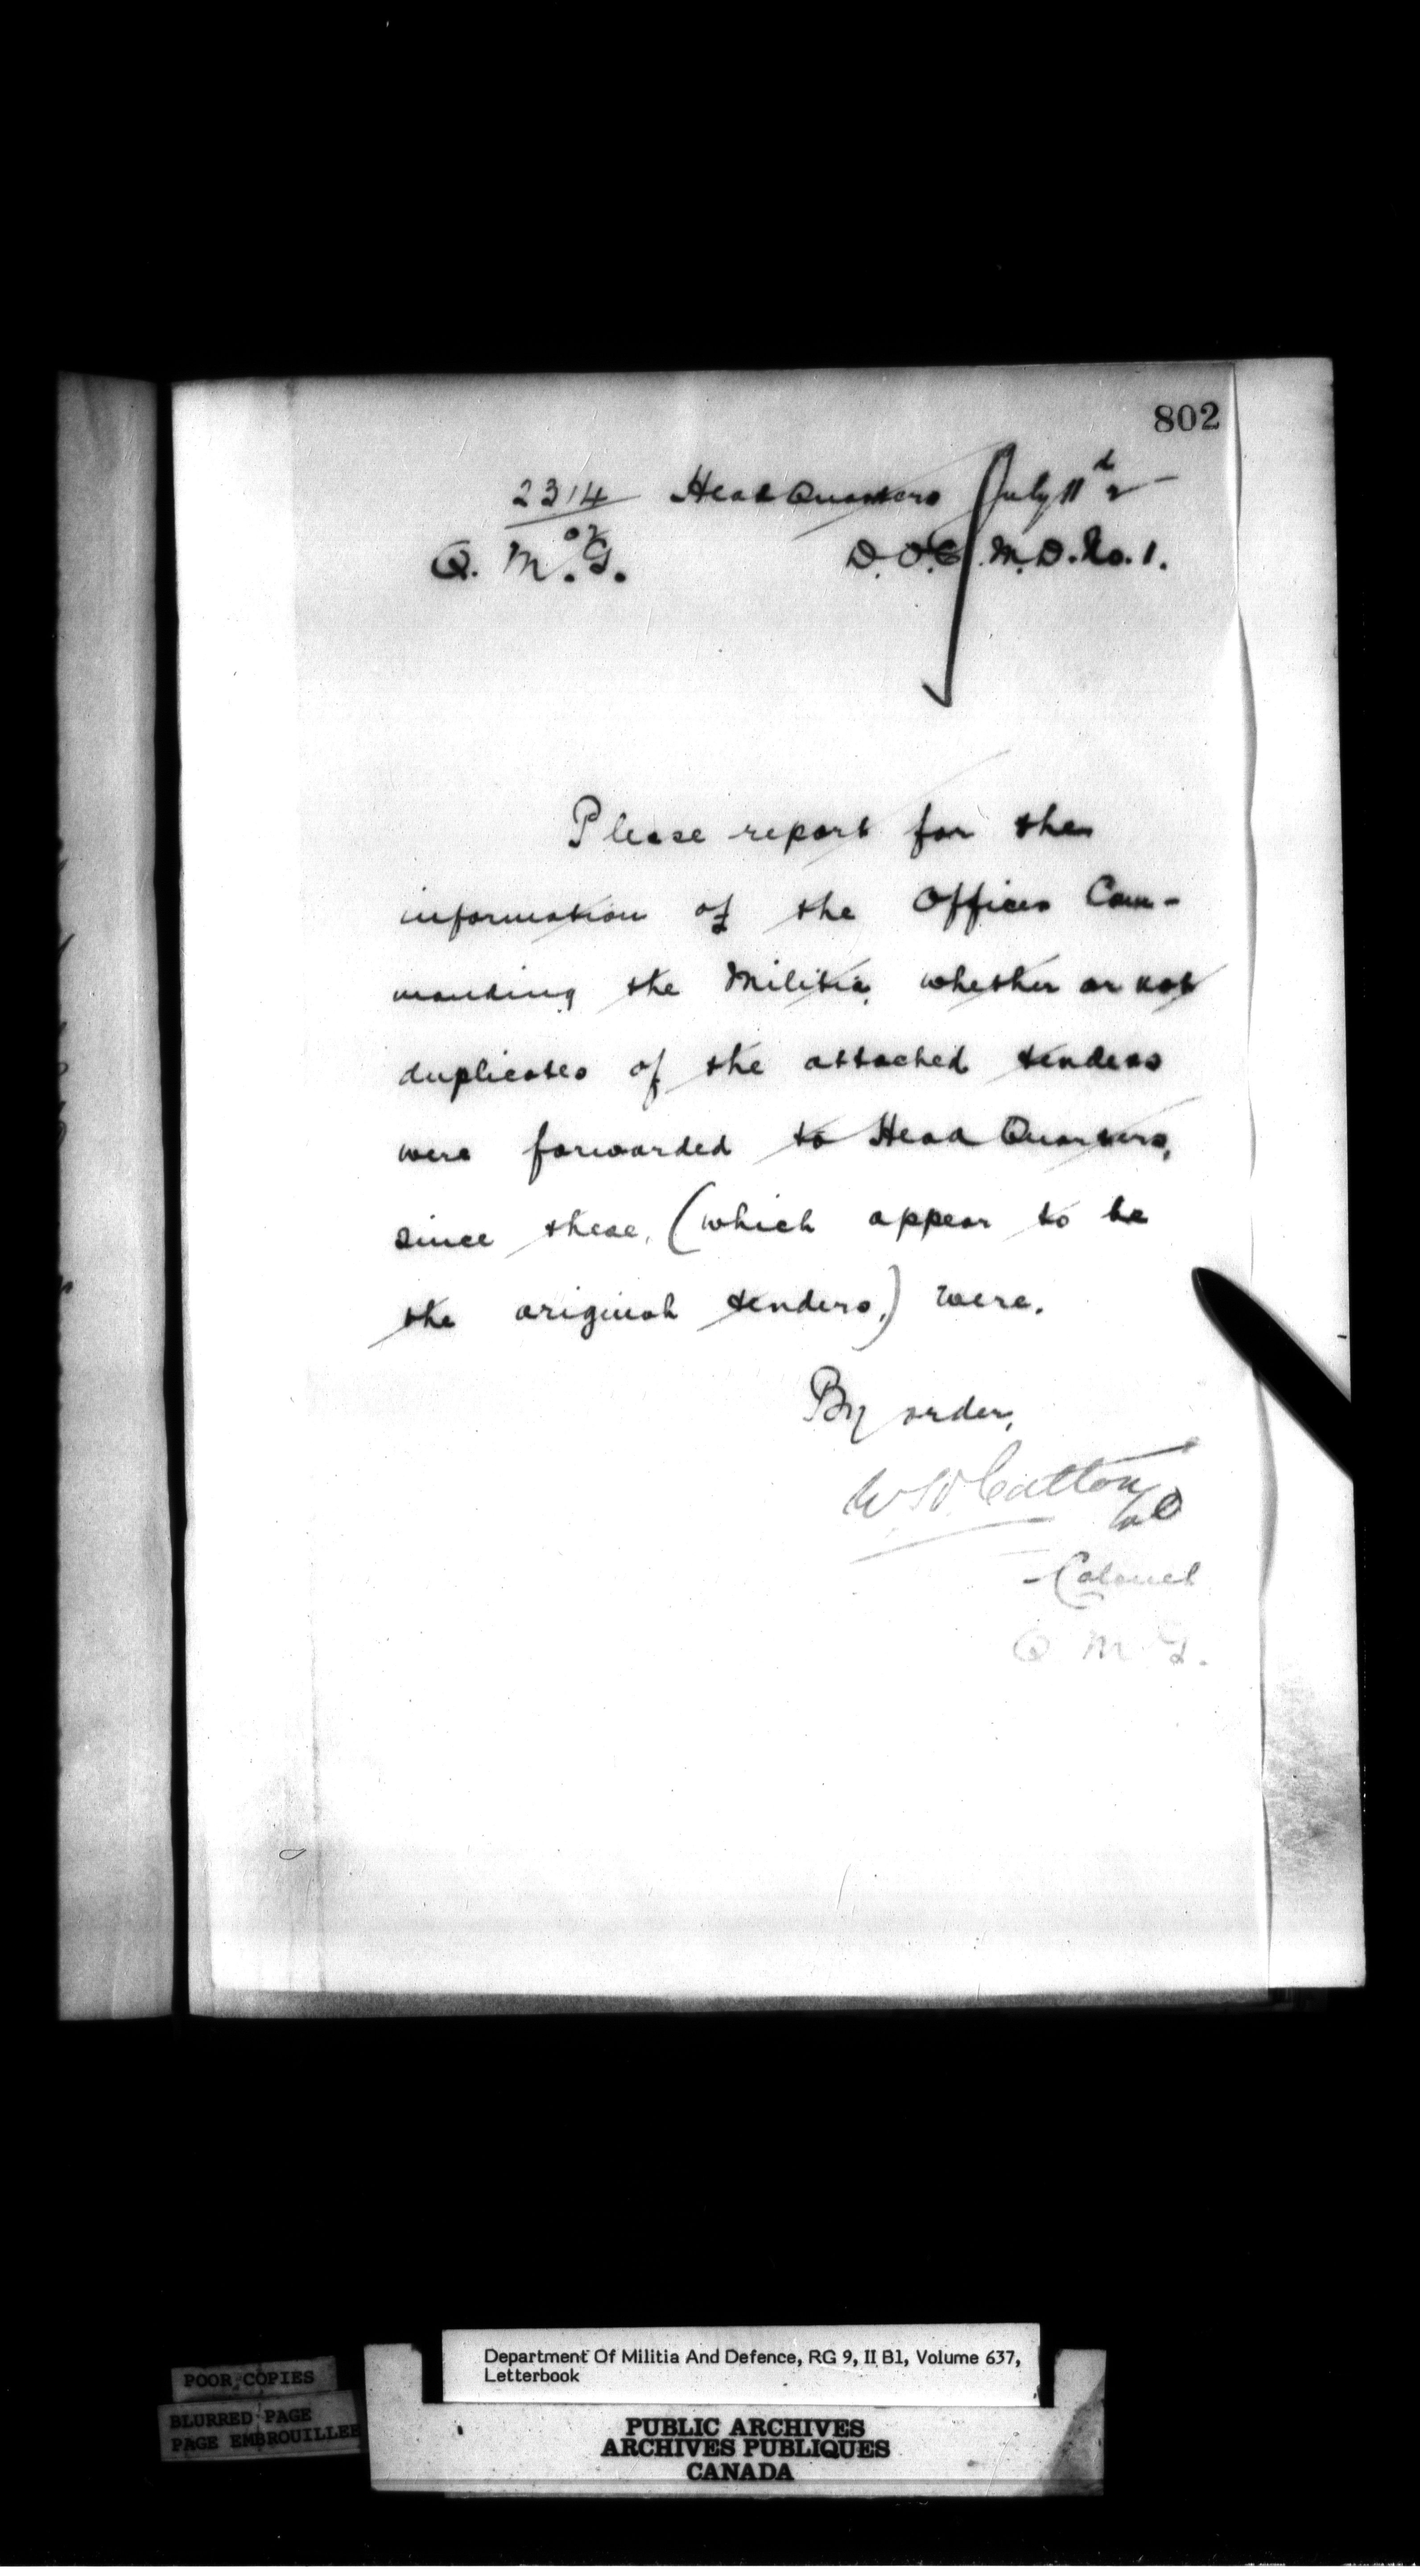 802
2314 Head Quarters July 11
Q. M. G. D.O.C. M.D. No. 1.
Please report for the
information of the Officer Com-
manding the Militia, whether or not
duplicates of the attached tenders
were forwarded to Head Quarters,
since these, (which appear to be
the original tenders,) were.
By order,
Colonel
Q M G.
Department Of Militia And Defence, RG 9, II B1, Volume 637,
Letterbook
POOR COPIES
BLURRED PAGE
PAGE EMBROUILLEE
PUBLIC ARCHIVES
ARCHIVES PUBLIQUES
CANADA